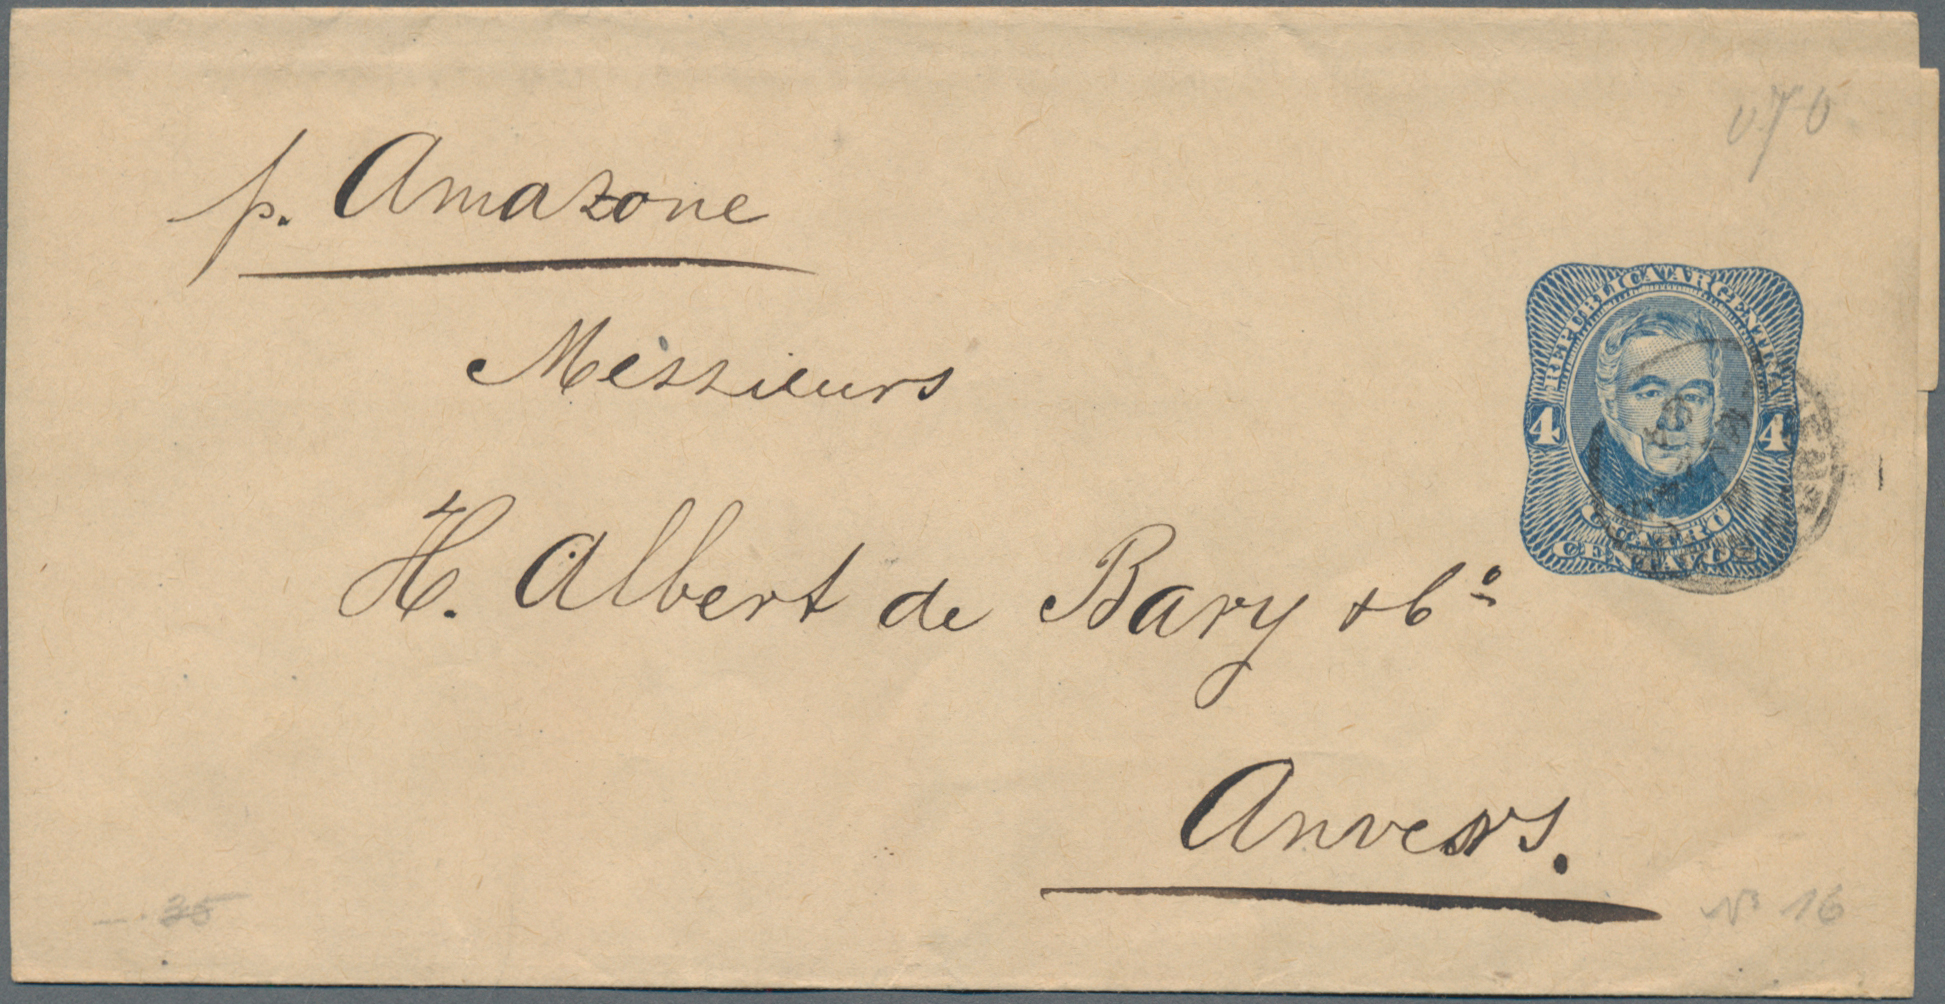 p. Amazone
Messieurs
H. Albert de Bary & Cº
Anvers.
REPUBLICA ARGENTINA
4 4
CUATRO
CENTAVOS
35
Nº 16